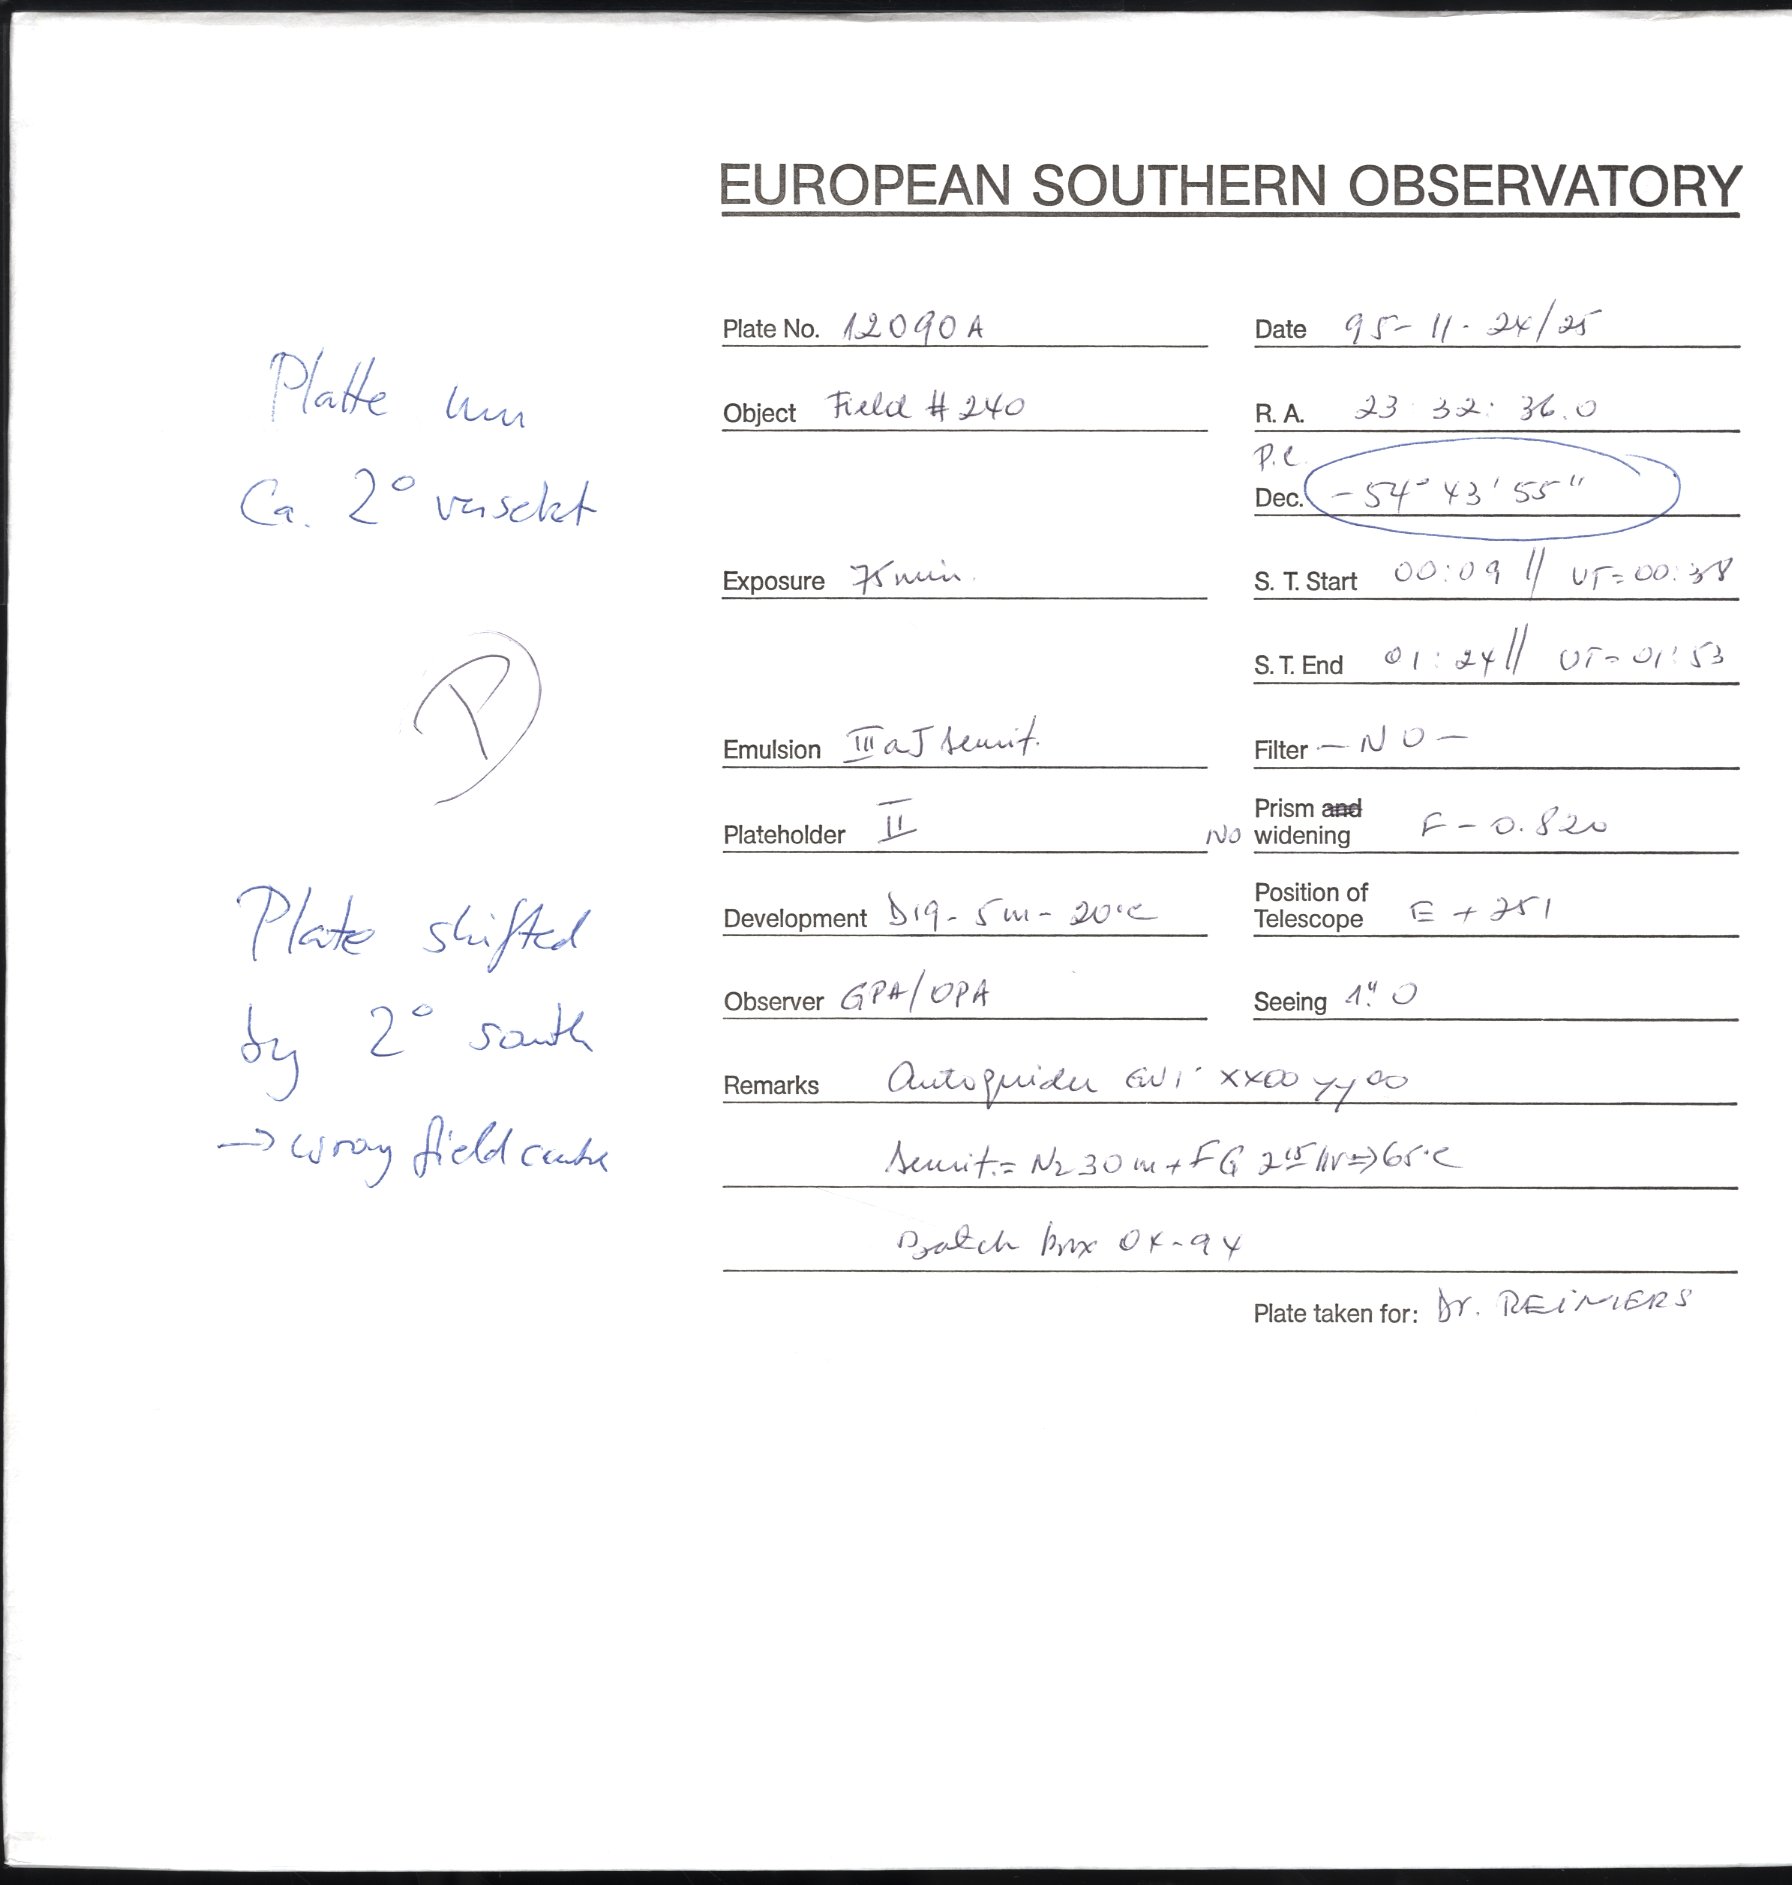 EUROPEAN SOUTHERN OBSERVATORY
Plate No. 12090A
Date 95-11-24/25
Object Field #240
R. A. 23 32: 36.0
P.C.
Dec. -54° 43' 55"
Exposure 75 min.
S. T. Start 00:09 // UT=00:38
S. T. End 01:24 // UT=01:53
Emulsion III aJ sensit.
Filter - NO -
Plateholder II
NO Prism and widening F-0.820
Development D19-5m-20°C
Position of Telescope E + 251
Observer GPA/OPA
Seeing 1".0
Remarks Autoguider XX00 YY00
Sensit.= N2 30m + FG 2 15 hr => 65°C
Batch box 0X-94
Plate taken for: Dr. REIMERS
Platte um
Ca. 2° versetzt
P
Plate shifted
by 2° south
→ wrong field centre